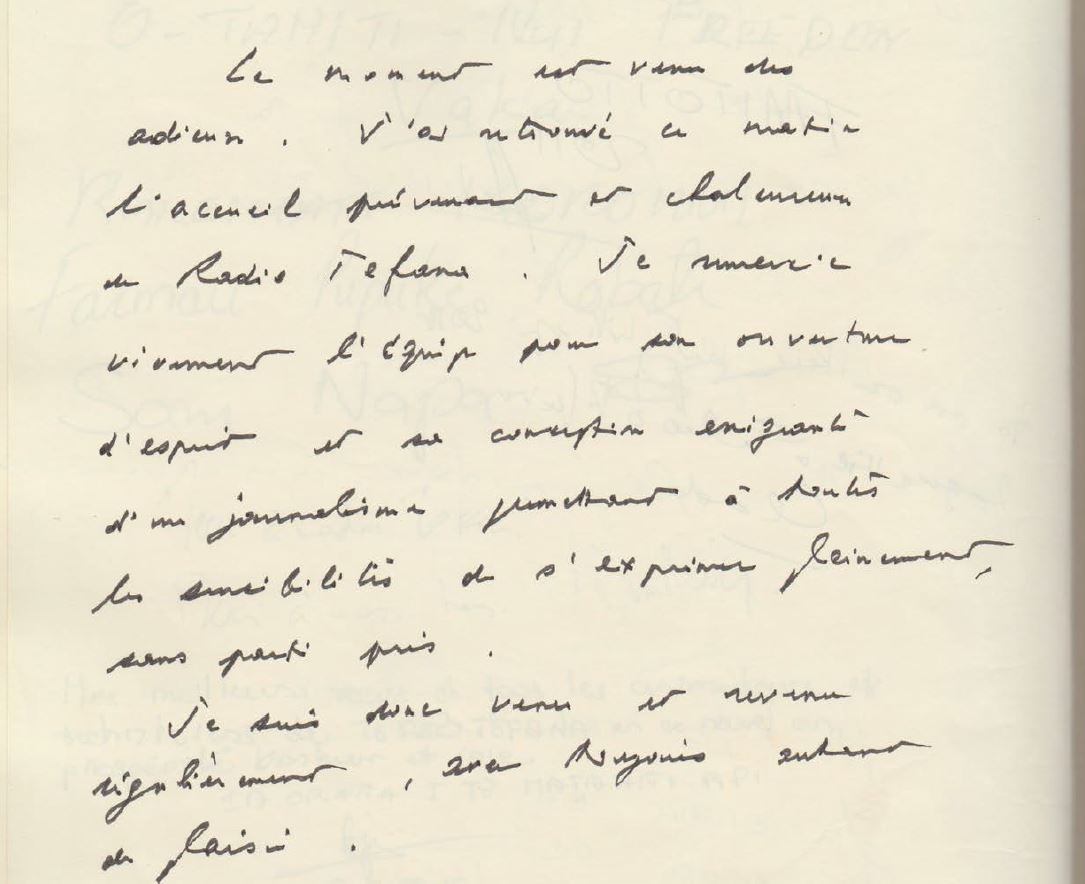 Le moment est venu des
adieux. J'ai retrouvé ce matin
l'accueil prévenant et chaleureux
de Radio Tefana. Je remercie
vivement l'équipe pour son ouverture
d'esprit et sa conception exigeante
d'un journalisme permettant à toutes
les sensibilités de s'exprimer pleinement,
sans parti pris.
Je suis donc venu et revenu
régulièrement, avec toujours autant
de plaisir.